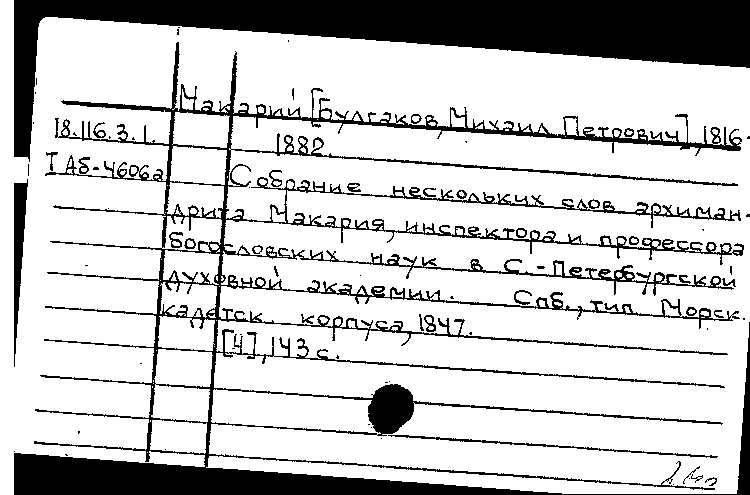 Макарий [Булгаков, Михаил Петрович], 1816-
18.116.3.1. 1882.
I Аб-4606а Собрание нескольких слов архиман-
дрита Макария, инспектора и профессора
богословских наук в С.-Петербургской
духовной академии. Спб., тип. Морск.
кадетск. корпуса, 1847.
[4], 143 с.